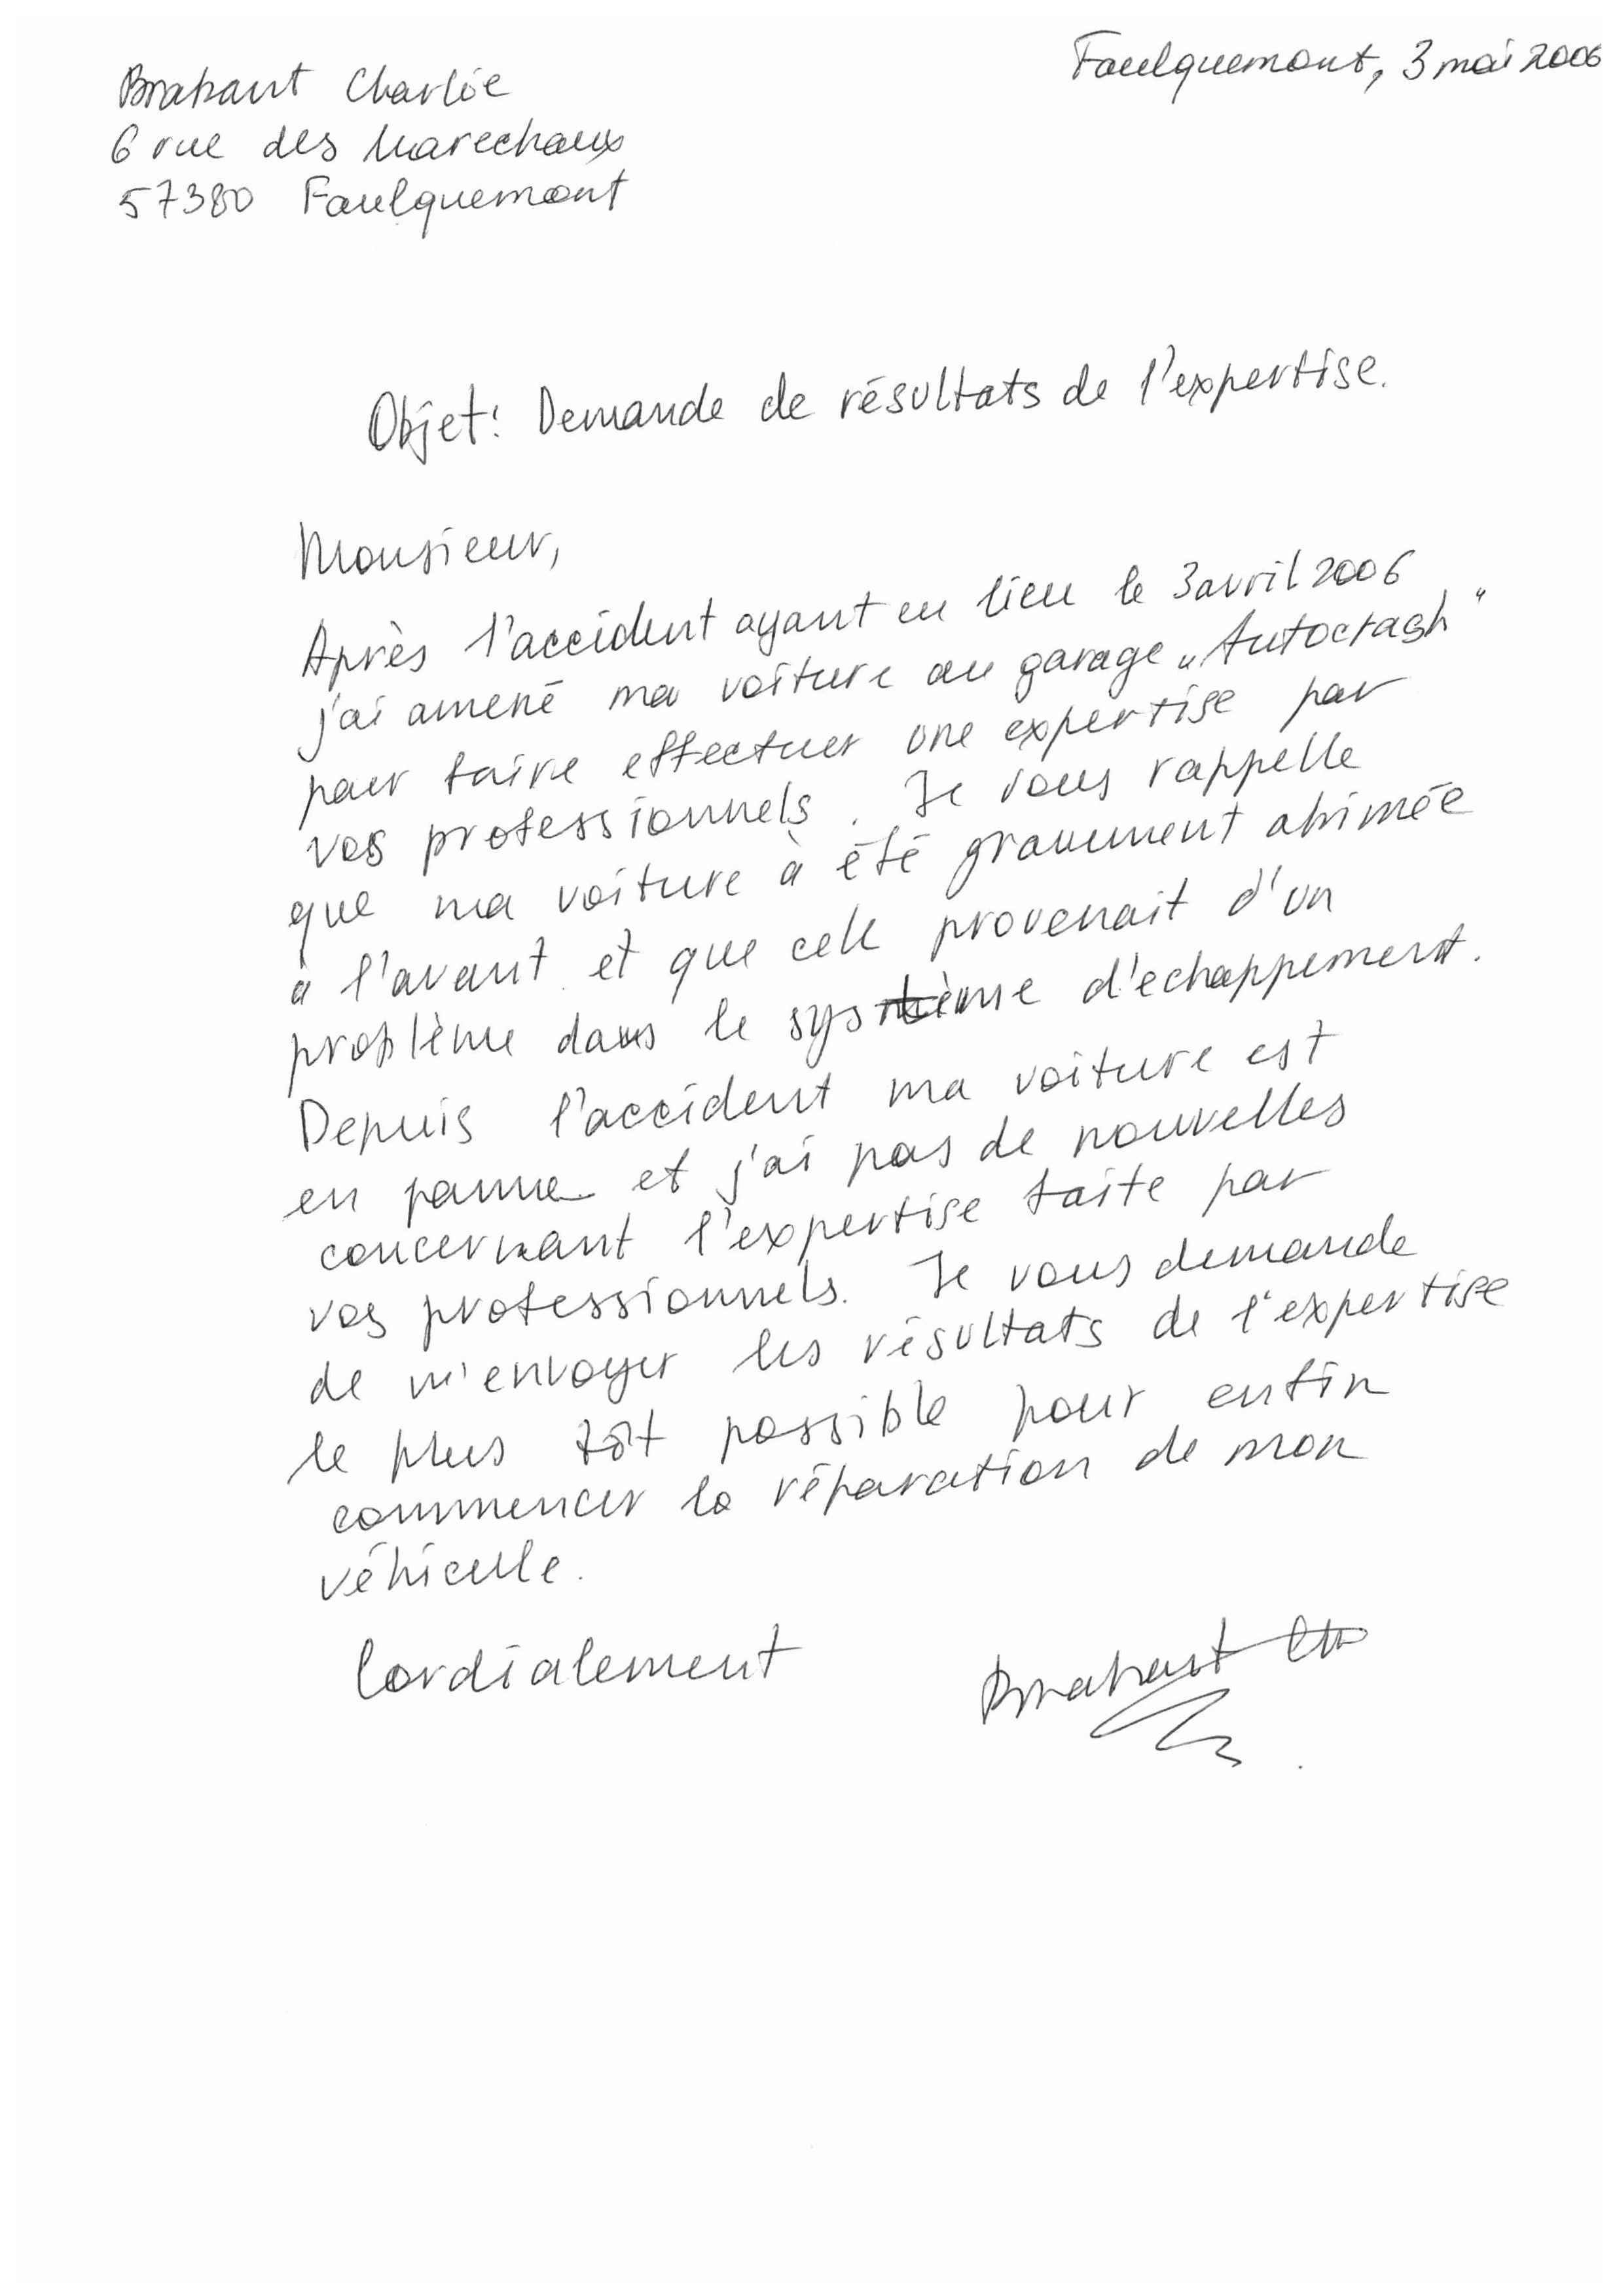 Faulquemont, 3 mai 2006
Brabant Charlie
6 rue des Marechaux
57380 Faulquemont
Objet: Demande de résultats de l'expertise.
Monsieur,
Après l'accident ayant eu lieu le 3 avril 2006
j'ai amené ma voiture au garage „Autocrash"
pour faire effectuer une expertise par
vos professionnels. Je vous rappelle
que ma voiture à été gravement abimée
à l'avant et que cela provenait d'un
problème dans le système d'echappement.
Depuis l'accident ma voiture est
en panne et j'ai pas de nouvelles
concernant l'expertise faite par
vos professionnels. Je vous demande
de m'envoyer les résultats de l'expertise
le plus tôt possible pour enfin
commencer la réparation de mon
véhicule.
Cordialement
Brabant Ch